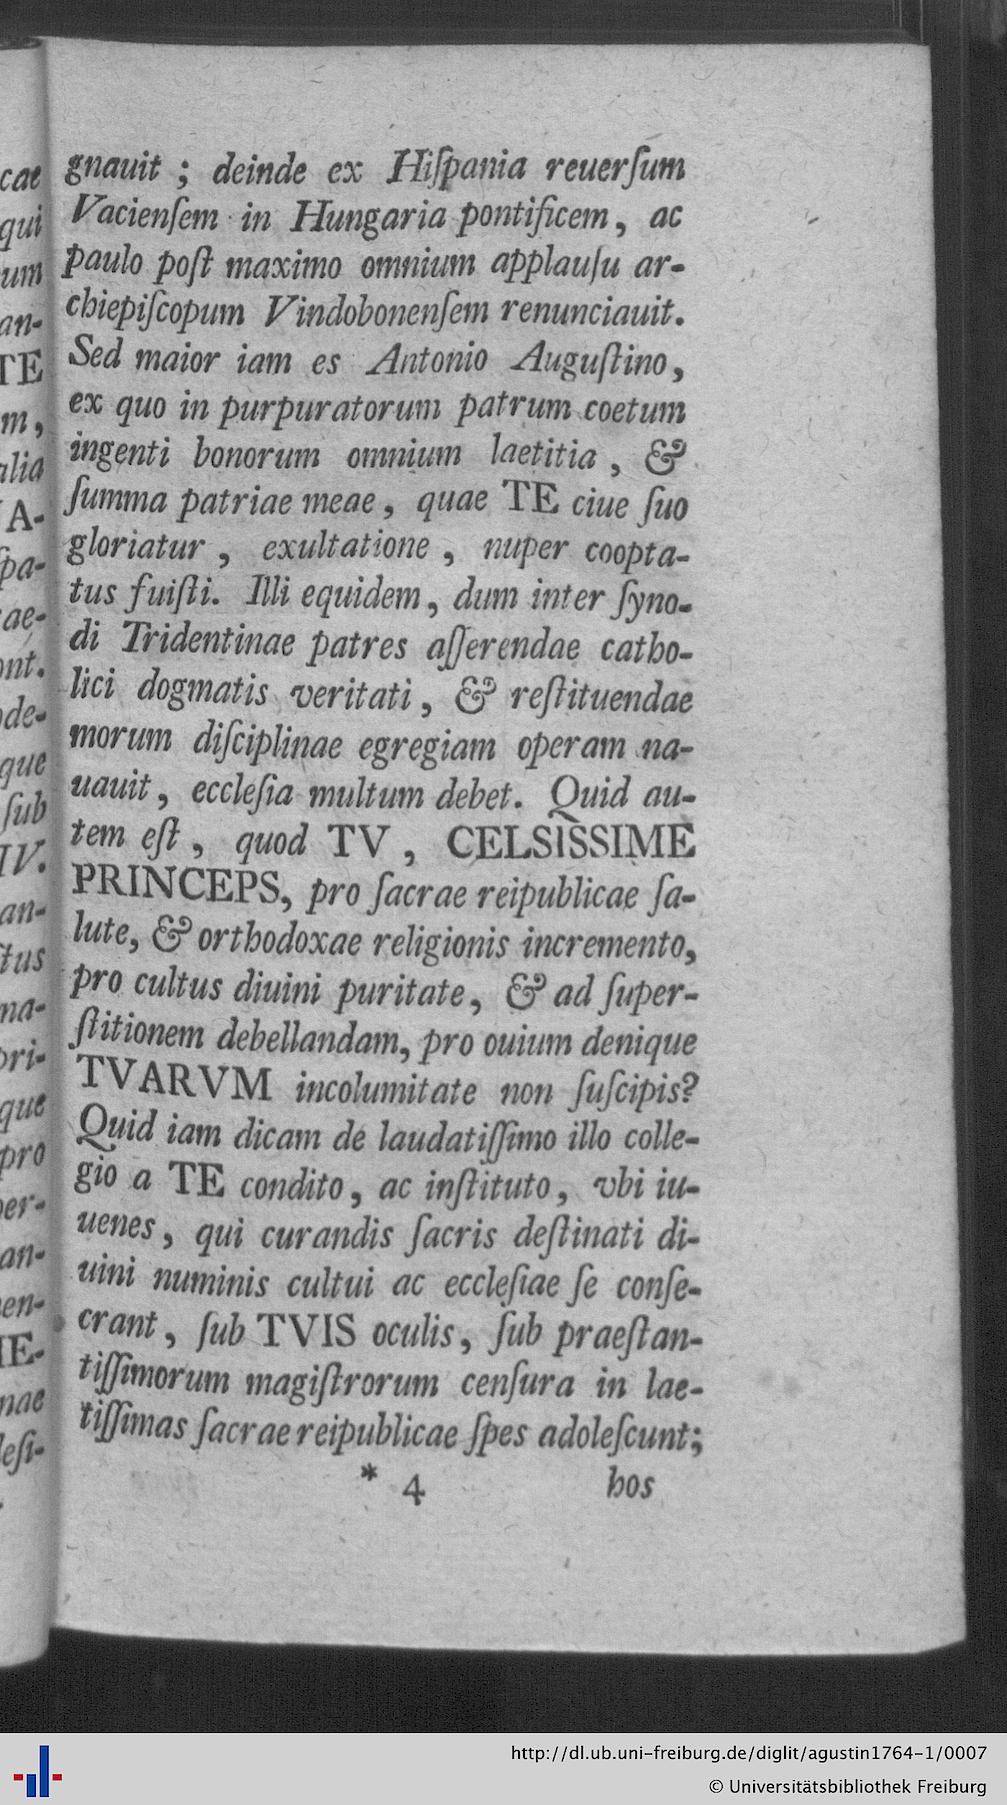 gnauit ; deinde ex Hiſpania reuerſum
Vacienſem in Hungaria pontificem, ac
paulo poſt maximo omnium applauſu ar-
chiepiſcopum Vindobonenſem renunciauit.
Sed maior iam es Antonio Auguſtino,
ex quo in purpuratorum patrum coetum
ingenti bonorum omnium laetitia , &
ſumma patriae meae, quae TE ciue ſuo
gloriatur , exultatione , nuper coopta-
tus fuiſti. Illi equidem, dum inter ſyno-
di Tridentinae patres aſſerendae catho-
lici dogmatis veritati, & reſtituendae
morum diſciplinae egregiam operam na-
uauit, eccleſia multum debet. Quid au-
tem eſt , quod TV , CELSISSIME
PRINCEPS, pro ſacrae reipublicae ſa-
lute, & orthodoxae religionis incremento,
pro cultus diuini puritate, & ad ſuper-
ſtitionem debellandam, pro ouium denique
TVARVM incolumitate non ſuſcipis?
Quid iam dicam de laudatiſſimo illo colle-
gio a TE condito, ac inſtituto, vbi iu-
uenes, qui curandis ſacris deſtinati di-
uini numinis cultui ac eccleſiae ſe conſe-
crant, ſub TVIS oculis, ſub praeſtan-
tiſſimorum magiſtrorum cenſura in lae-
tiſſimas ſacrae reipublicae ſpes adoleſcunt;
* 4 hos
cae
qui
um
an-
TE
m,
alia
A-
ſpa-
ae-
ont.
ode-
que
ſub
IV.
an-
ctus
na-
pri-
que
pro
per-
an-
en-
E-
nae
leſi-
http://dl.ub.uni-freiburg.de/diglit/agustin1764-1/0007
© Universitätsbibliothek Freiburg